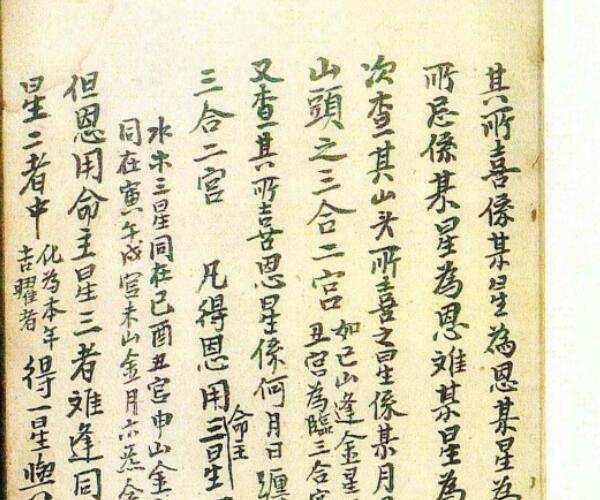 其所喜係某星為恩某星為
所忌係某星為恩难某星為
次查其山头所喜之星係某月
山頭之三合二宫
如巳山逢金星
丑宫為臨三合宫
又查其所喜恩星係何月日躔
三合二宫 凡得恩用三星
命主
水木三星同在巳酉丑宫申山金
同在寅午戌宫未山金月六炁
但恩用命主星三者难逢同
星二者中
化為本年
吉曜者
得一星